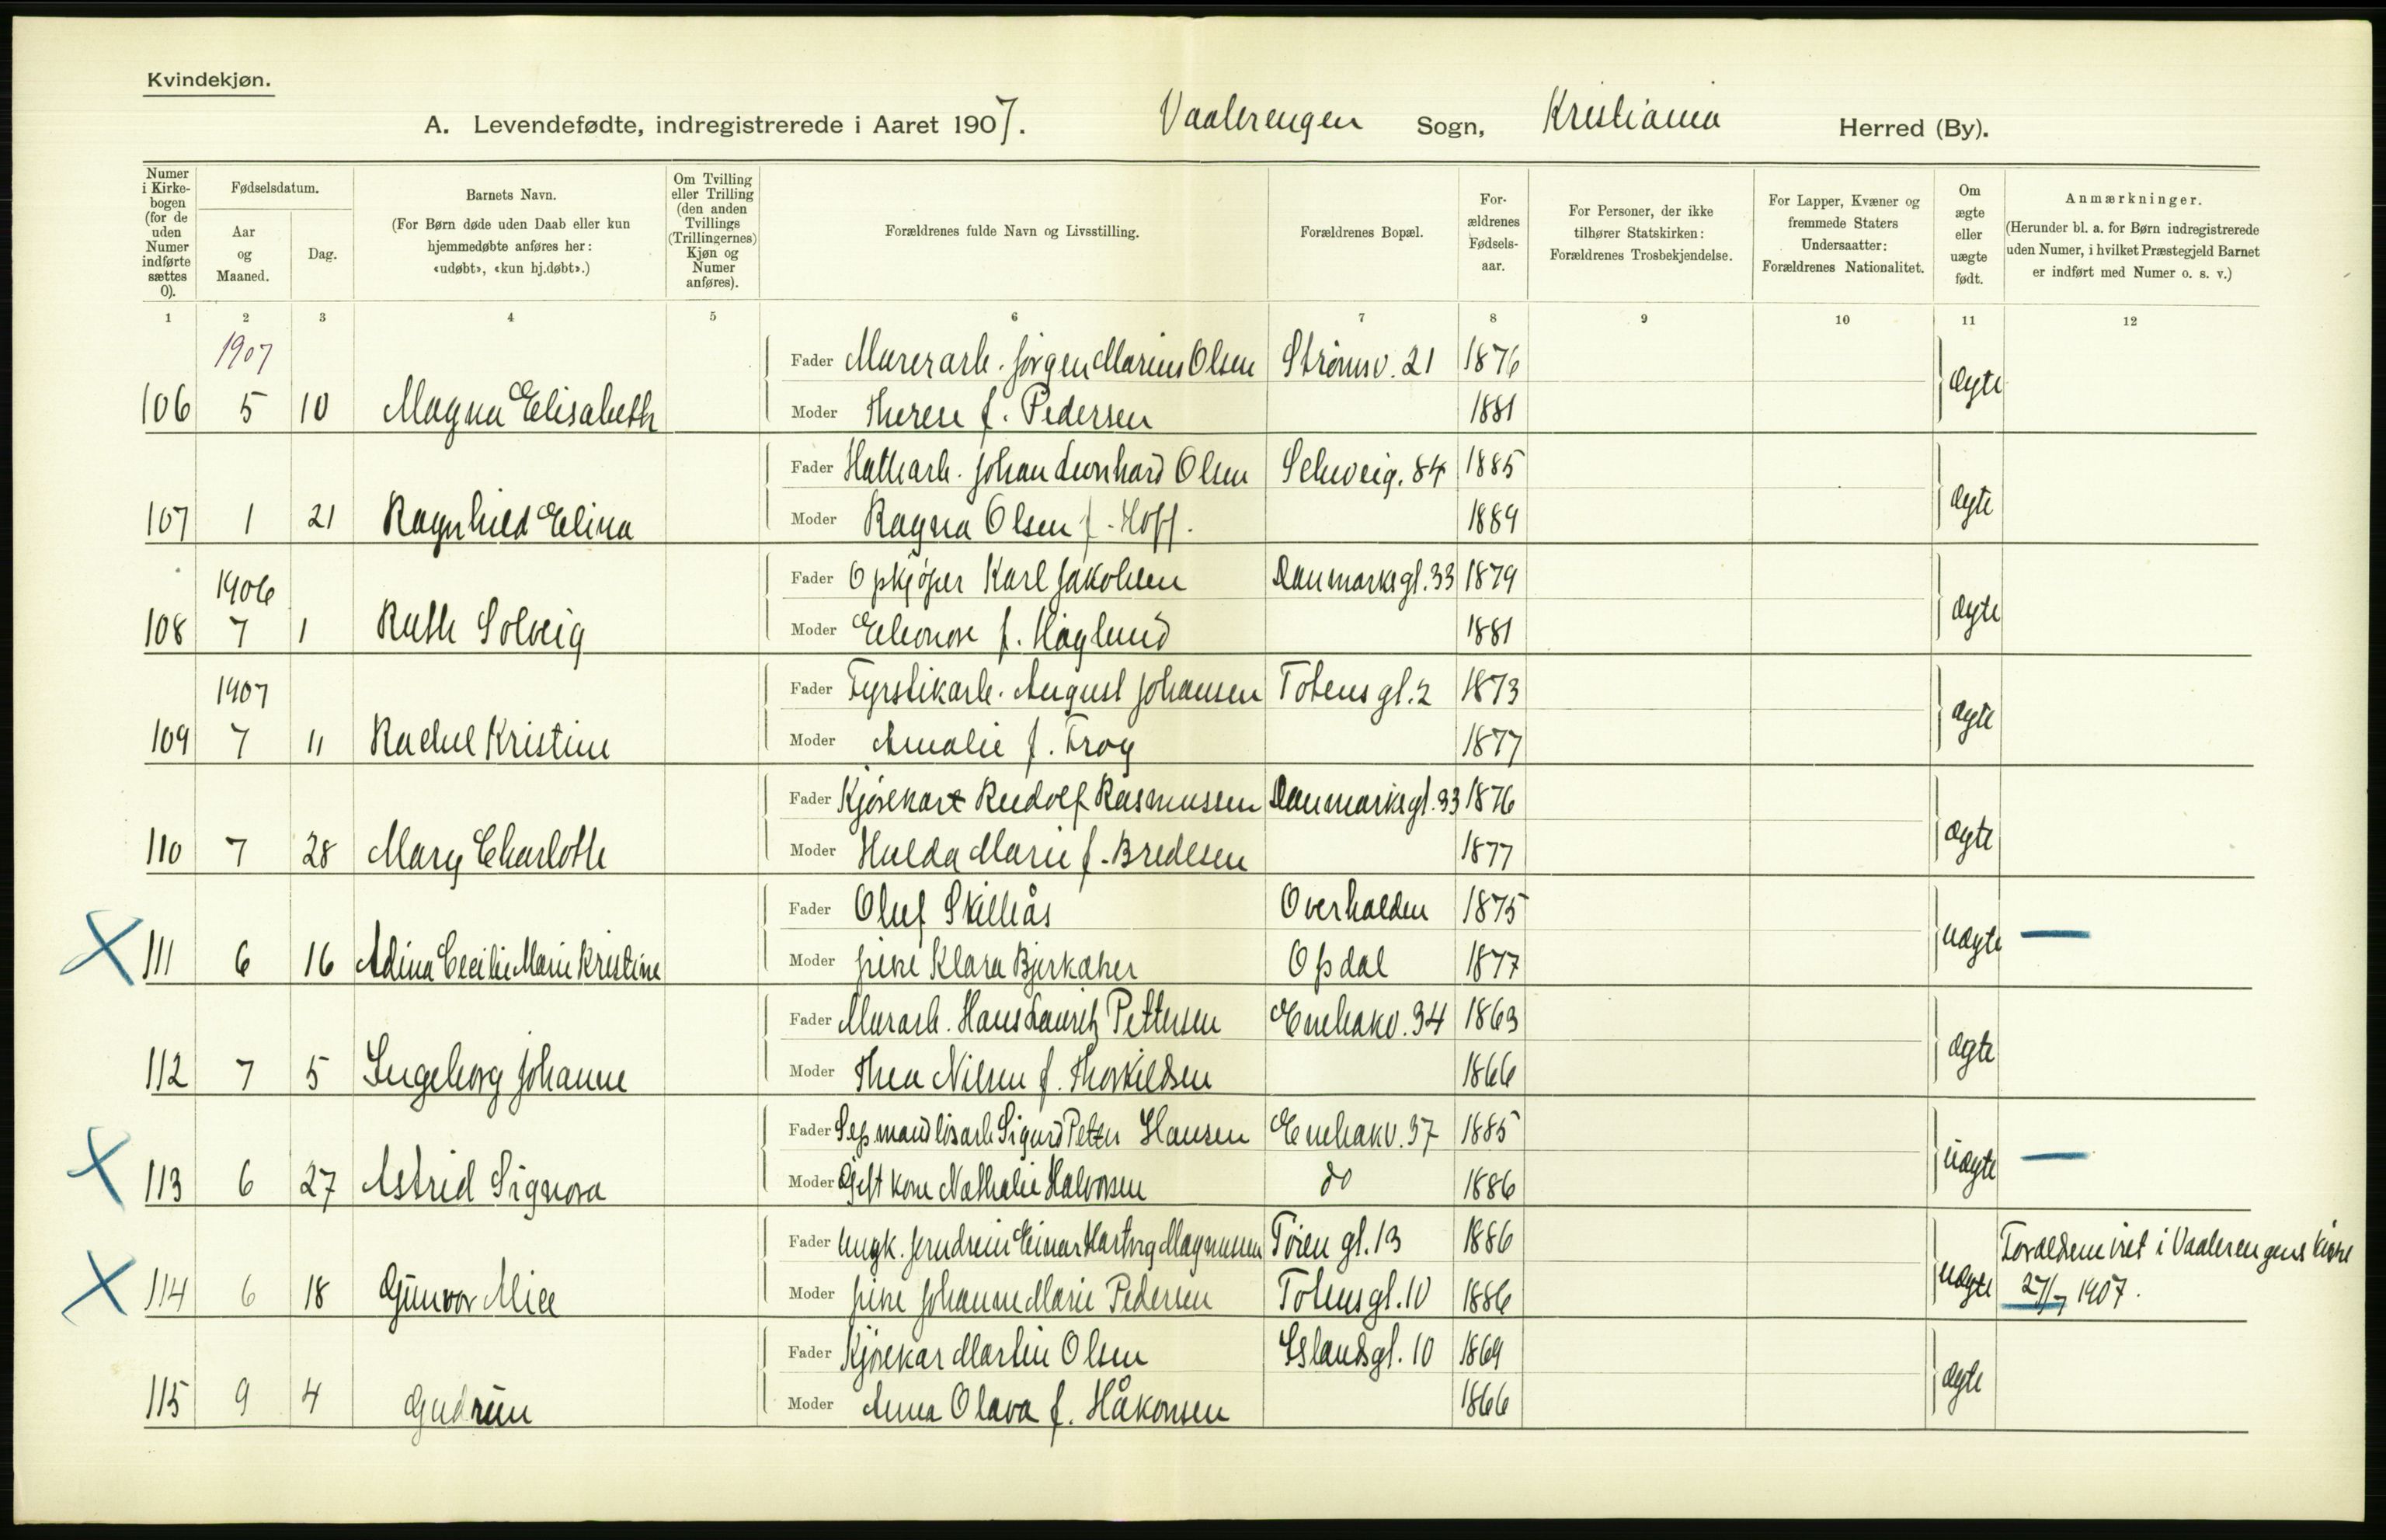 Kvindekjøn.
A. Levendefødte, indregistrerede i Aaret 1907. Vaalerengen Sogn, Kristiania Herred (By).
Numer i Kirkebogen (for de uden Numer indførte sættes 0).
Fødselsdatum.
Aar og Maaned.
Dag.
Barnets Navn.
(For Børn døde uden Daab eller kun hjemmedøbte anføres her: «udøbt», «kun hj.døbt».)
Om Tvilling eller Trilling (den anden Tvillings (Trillingernes) Kjøn og Numer anføres).
Forældrenes fulde Navn og Livsstilling.
Forældrenes Bopæl.
Forældrenes Fødselsaar.
For Personer, der ikke tilhører Statskirken: Forældrenes Trosbekjendelse.
For Lapper, Kvæner og fremmede Staters Undersaatter: Forældrenes Nationalitet.
Om ægte eller uægte født.
Anmærkninger.
(Herunder bl. a. for Børn indregistrerede uden Numer, i hvilket Præstegjeld Barnet er indført med Numer o. s. v.)
1 2 3 4 5 6 7 8 9 10 11 12
1907
Fader Murerarb. Jørgen Marius Olsen Strømsv. 21 1876
106 5 10 Magna Elisabeth Moder Therese f. Pedersen 1881 ægte
Fader Hattearb. Johan Leonhard Olsen Schweig. 84 1885
107 1 21 Ragnhild Elina Moder Ragna Olsen f. Hoff. 1889 ægte
1906
Fader Opkjøper Karl Jakobsen Danmarksgt. 33 1879
108 7 1 Ruth Solveig Moder Eleonore f. Høglund 1881 ægte
1907
Fader Fyrstikarb. August Johansen Totensgt. 2 1873
109 7 11 Rachel Kristine Moder Amalie f. Frog 1877 ægte
Fader Kjørekar Rudolf Rasmussen Danmarksgt. 33 1876
110 7 28 Mary Charlotte Moder Hulda Marie f. Bredesen 1877 ægte
Fader Oluf Skillås Overhalden 1875
X 111 6 16 Adina Cecilie Marie Kristine Moder pike Klara Bjerkaker Opdal 1877 uægte —
Fader Murarb. Hans Lauritz Pettersen Enebakv. 34 1863
112 7 5 Ingeborg Johanne Moder Thea Nilsen f. Thorkildsen 1866 ægte
Fader Sep. mand løsarb Sigurd Petter Hansen Enebakv. 37 1885
X 113 6 27 Astrid Signora Moder Gift kone Nathalie Halvorsen do 1886 uægte —
Fader Ungk. Einar Hartvig Magnussen Tøien gt. 13 1886
X 114 6 18 Gunvor Alice Moder pike Johanne Marie Pedersen Totensgt. 10 1886 uægte
Forældrene viet i Vaalerengens kirke
27/7 1907.
Fader Kjørekar Martin Olsen Islandsgt. 10 1869
115 9 4 Gudrun Moder Anna Olava f. Håkonsen 1866 ægte